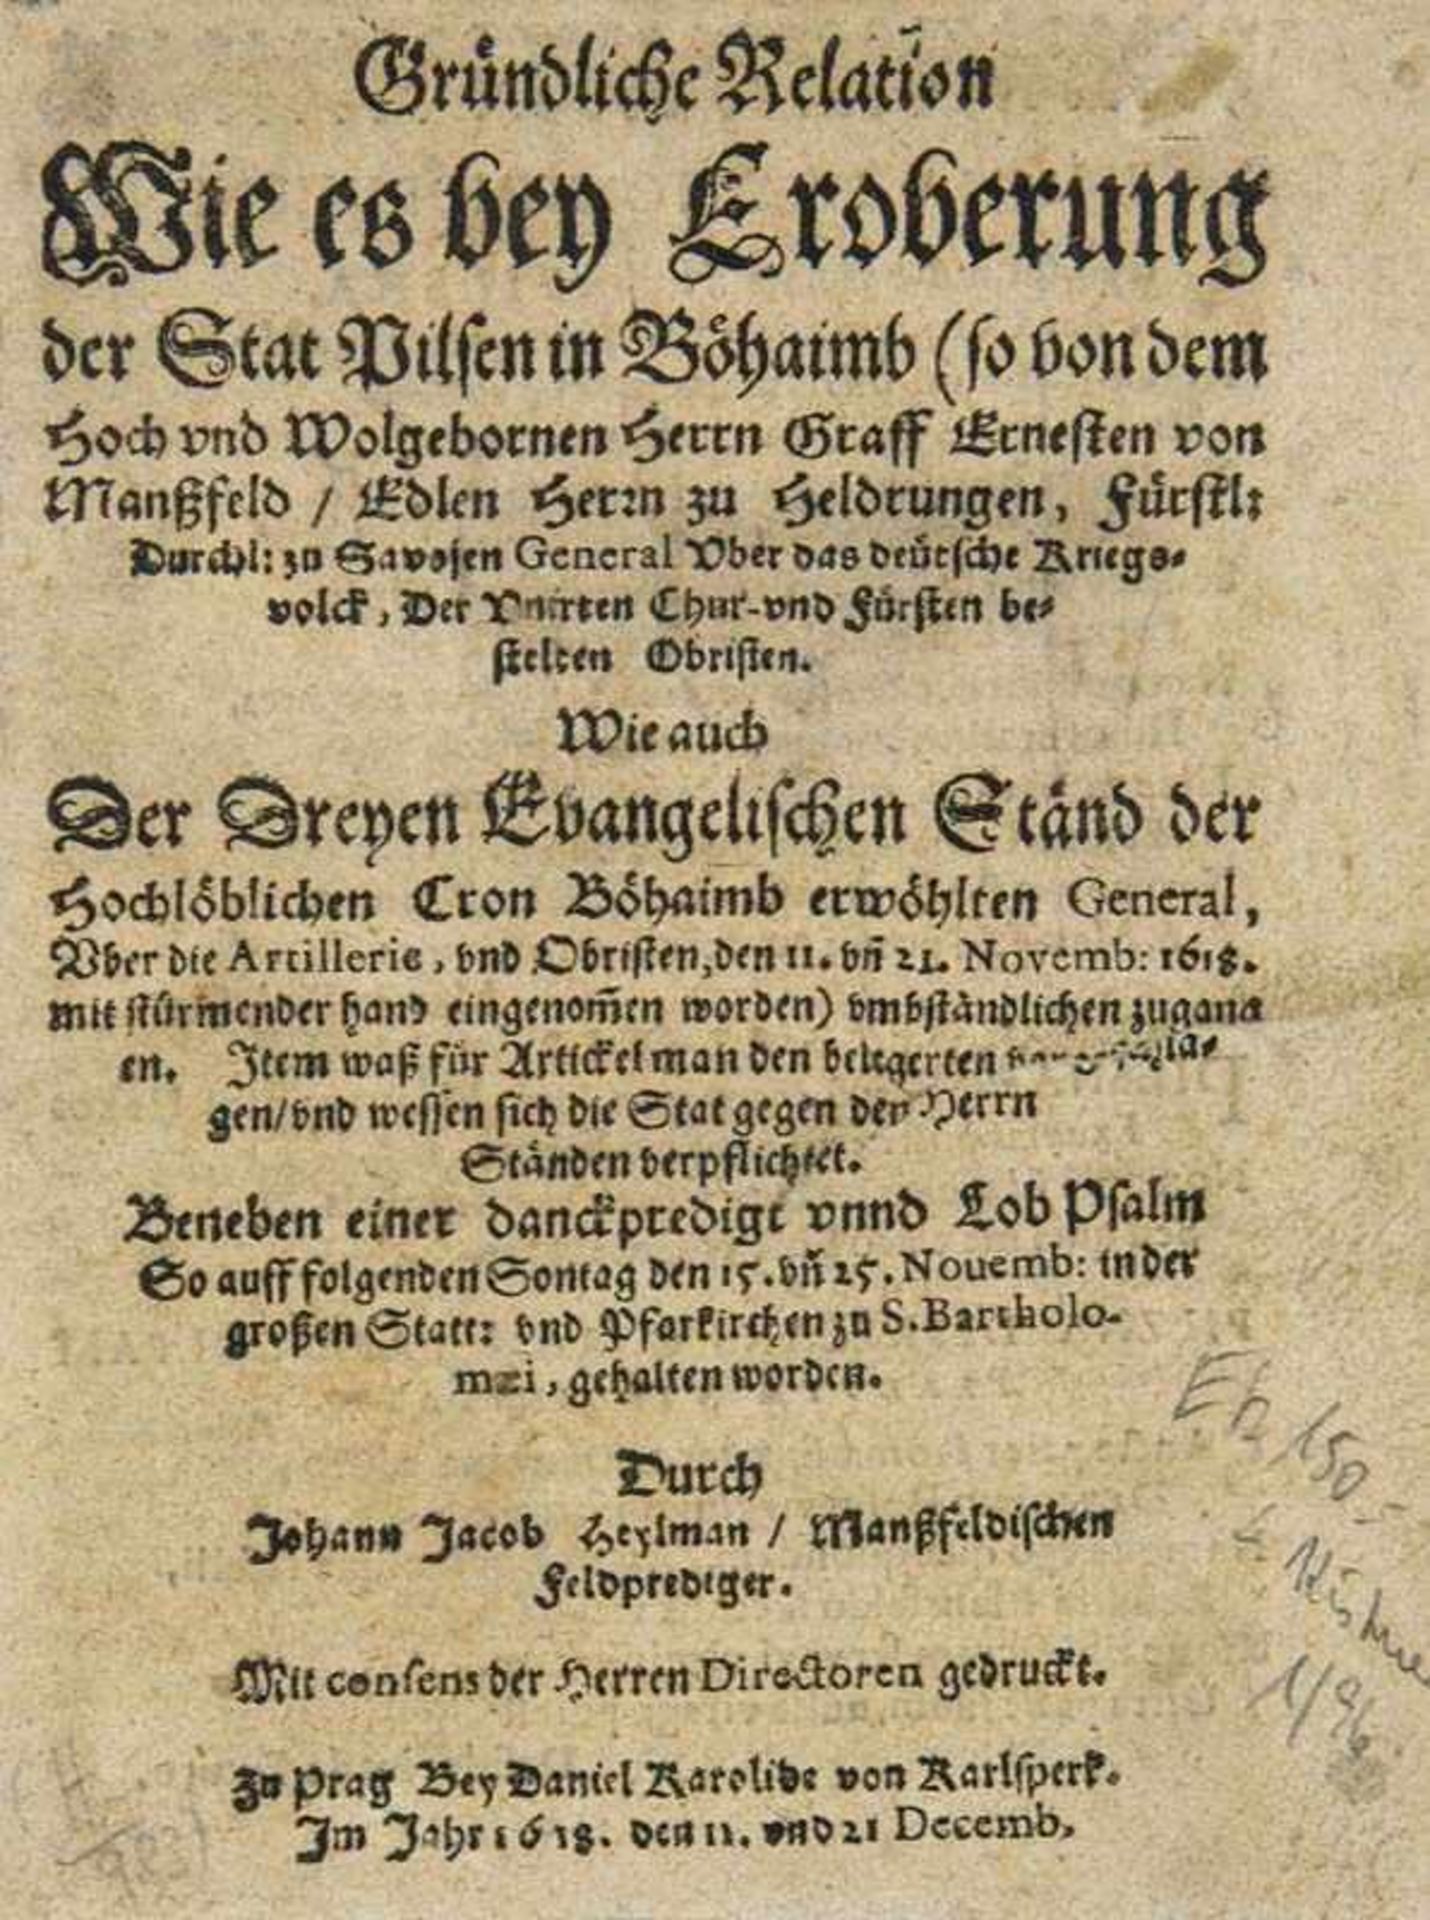 Gründliche Relation
Wie es bey Eroberung
der Stat Pilsen in Böhaimb (so von dem
Hoch vnd Wolgebornen Herrn Graff Ernesten von
Manßfeld / Edlen Herrn zu Heldrungen, Fürstl:
Durchl: zu Savojen General Vber das deütsche Kriegs-
volck, Der Vnirten Chur-vnd Fürsten be-
stelten Obristen.
Wie auch
Der Dreyen Evangelischen Ständ der
Hochlöblichen Cron Böhaimb erwöhlten General,
Vber die Artillerie, vnd Obristen, den 11. vñ 21. Novemb: 1618.
mit stürmender hand eingenom̃en worden) vmbständlichen zugang
en. Item waß für Artickel man den belegerten
gen/vnd wessen sich die Stat gegen den Herrn
Ständen verpflichtet.
Beneben einer danckpredigt vnnd Lob Psalm
So auff folgenden Sontag den 15. vñ 25. Nouemb: in der
großen Statt: vnd Pfarkirchen zu S. Bartholo-
mæi, gehalten worden.
Durch
Johann Jacob Heylman / Manßfeldischen
Feldprediger.
Mit consens der Herren Directoren gedruckt.
Zu Prag Bey Daniel Karolide von Karlsperk.
Im Jahr 1618. den 11. vnd 21 Decemb,
150
1/96